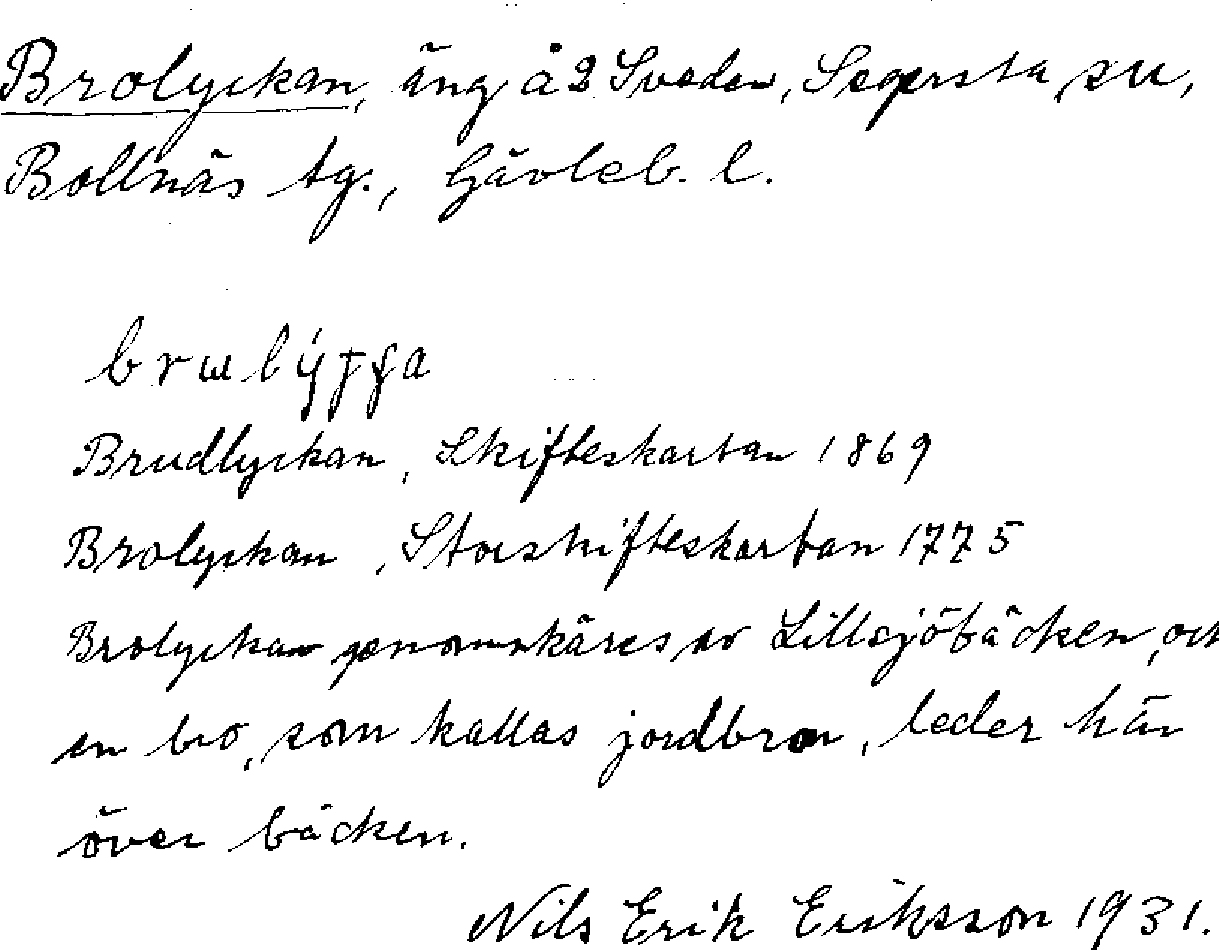 Brolyckan, äng å 2 Sveden, Segersta sn,
Bollnäs tg., Gävleb. l.
Brudlyckan, Skifteskartan 1869
Brolyckan, Storskifteskartan 1775
Brolyckan genomskäres av Lillsjöbäcken, och
en bro, som kallas jordbron, leder här
över bäcken.
Nils Erik Eriksson 1931.